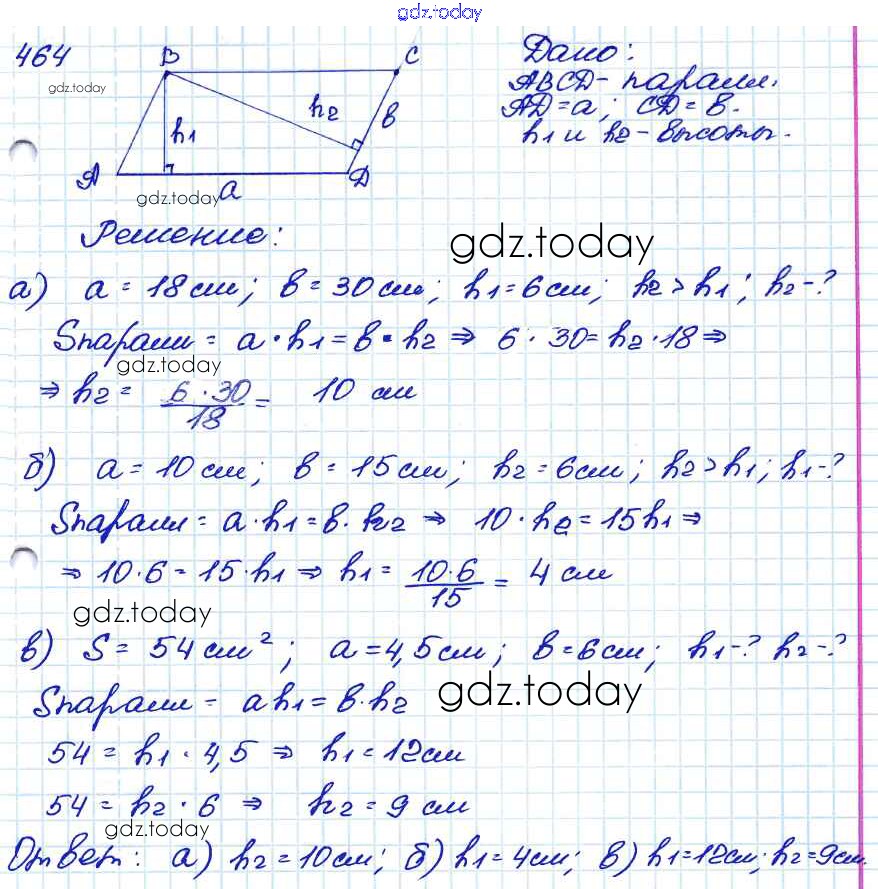 gdz.today
464
gdz.today
B
C
h1
h2
в
A
D
a
gdz.today
Дано:
ABCD- паралл.
AD=a; CD=в.
h1 и h2-высоты.
Решение:
gdz.today
а) a=18см; в=30см; h1=6см; h2>h1; h2-?
Sпаралл = a·h1=в·h2 ⇒ 6·30=h2·18⇒
gdz.today
⇒ h2= 6·30/18 = 10 см
б) a=10см; в=15см; h2=6см; h2>h1; h1-?
Sпаралл=a·h1=в·h2 ⇒ 10·h2=15h1⇒
⇒ 10·6=15·h1 ⇒ h1= 10·6/15 = 4 см
gdz.today
в) S=54 см²; a=4,5см; в=6см; h1-? h2-?
Sпаралл = ah1=в·h2
gdz.today
54=h1·4,5 ⇒ h1=12см
54=h2·6 ⇒ h2=9 см
gdz.today
Ответ: а) h2=10см; б) h1=4см; в) h1=12см; h2=9см.